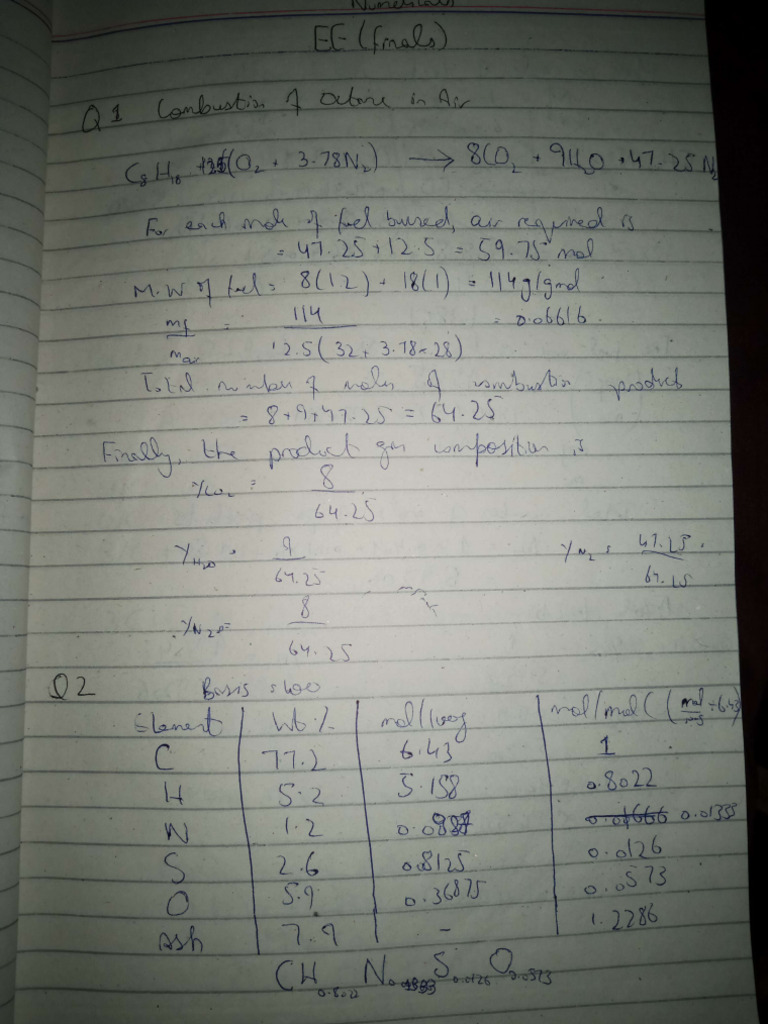 Numericals
EE (finals)
Q1 Combustion of Octane in Air
C8H18 + 12.5(O2 + 3.78N2) → 8CO2 + 9H2O + 47.25 N2
For each mole of fuel burned, air required is
= 47.25 + 12.5 = 59.75 mol
M.W of fuel = 8(12) + 18(1) = 114 g/gmol
mf/mair = 114 / 12.5(32 + 3.78×28) = 0.06616
Total number of moles of combustion product
= 8+9+47.25 = 64.25
Finally, the product gas composition is
yCO2 = 8/64.25
yH2O = 9/64.25 yN2 = 47.25/64.25
yN2 = 8/64.25
Q2 Basis : 100
Element Wt % mol/100g mol/mol ((mol/ ÷6.43)
C 77.2 6.43 1
H 5.2 5.158 0.8022
N 1.2 0.0857 0.01666 0.01333
S 2.6 0.8125 0.0126
O 5.9 0.36875 0.0573
Ash 7.9 - 1.2286
CH0.8022 N0.01333 S0.0126 O0.0573